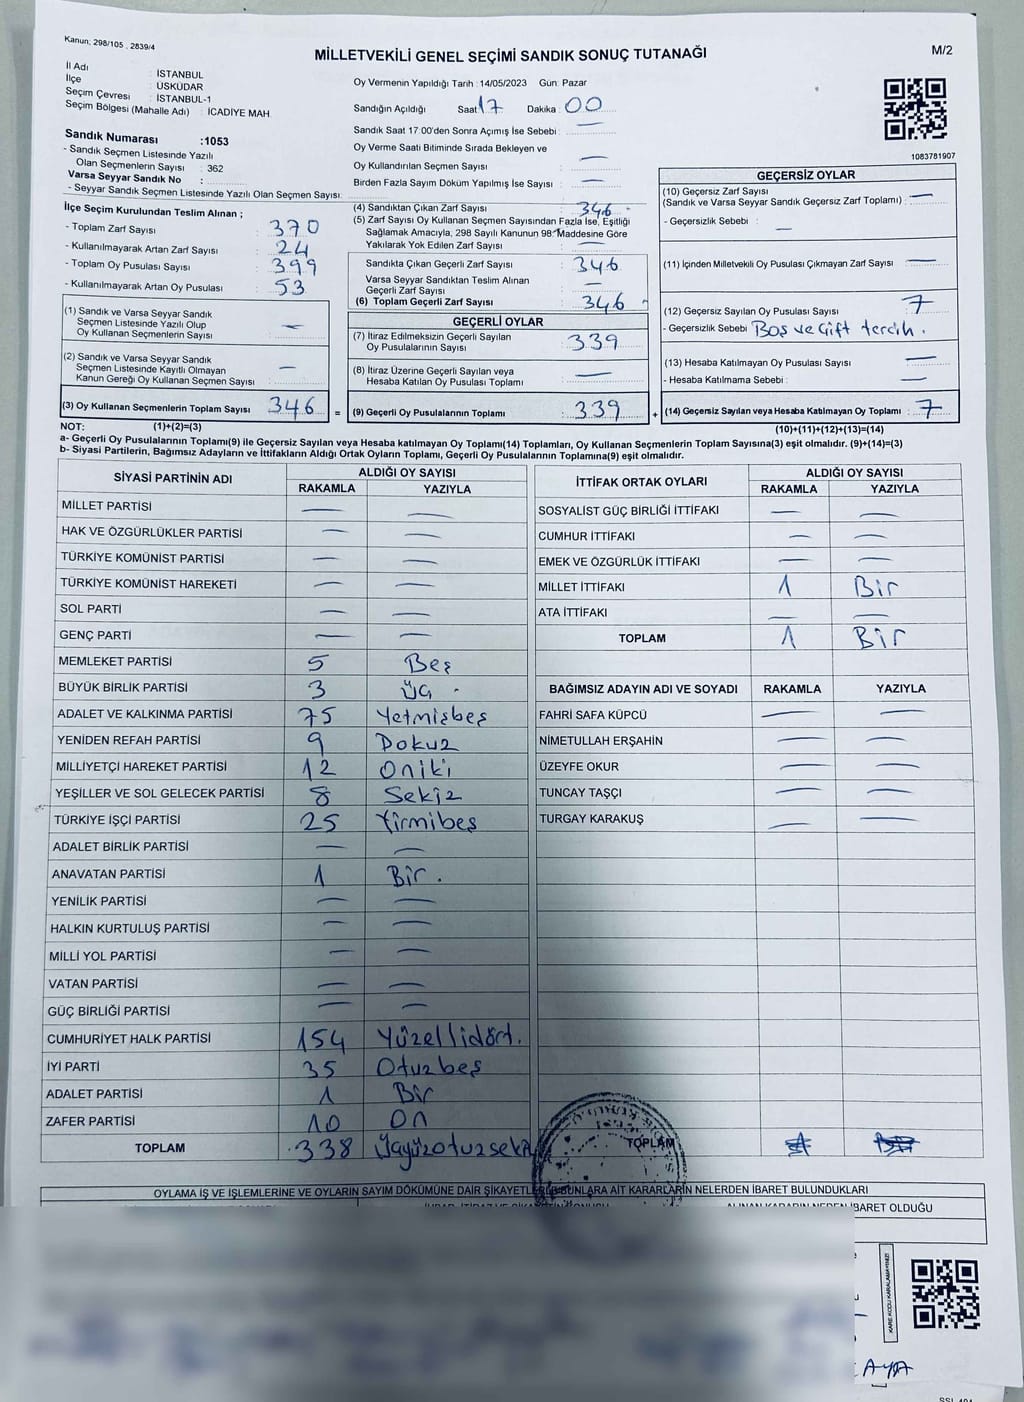 Kanun; 298/105 , 2839/4
MİLLETVEKİLİ GENEL SEÇİMİ SANDIK SONUÇ TUTANAĞI
M/2
İl Adı : İSTANBUL
İlçe : ÜSKÜDAR
Seçim Çevresi : İSTANBUL-1
Seçim Bölgesi (Mahalle Adı) : İCADİYE MAH.
Sandık Numarası :1053
- Sandık Seçmen Listesinde Yazılı
Olan Seçmenlerin Sayısı : 362
Varsa Seyyar Sandık No :
- Seyyar Sandık Seçmen Listesinde Yazılı Olan Seçmen Sayısı:
Oy Vermenin Yapıldığı Tarih : 14/05/2023 Gün: Pazar
Sandığın Açıldığı Saat: 17 Dakika : 00
Sandık Saat 17:00'den Sonra Açımış İse Sebebi : —
Oy Verme Saati Bitiminde Sırada Bekleyen ve
Oy Kullandırılan Seçmen Sayısı : —
Birden Fazla Sayım Döküm Yapılmış İse Sayısı : —
1083781907
İlçe Seçim Kurulundan Teslim Alınan ;
- Toplam Zarf Sayısı : 370
- Kullanılmayarak Artan Zarf Sayısı : 24
- Toplam Oy Pusulası Sayısı : 399
- Kullanılmayarak Artan Oy Pusulası : 53
(1) Sandık ve Varsa Seyyar Sandık
Seçmen Listesinde Yazılı Olup
Oy Kullanan Seçmenlerin Sayısı : —
(2) Sandık ve Varsa Seyyar Sandık
Seçmen Listesinde Kayıtlı Olmayan
Kanun Gereği Oy Kullanan Seçmen Sayısı : —
(3) Oy Kullanan Seçmenlerin Toplam Sayısı : 346 =
(4) Sandıktan Çıkan Zarf Sayısı : 346
(5) Zarf Sayısı Oy Kullanan Seçmen Sayısından Fazla İse, Eşitliği
Sağlamak Amacıyla, 298 Sayılı Kanunun 98. Maddesine Göre
Yakılarak Yok Edilen Zarf Sayısı : —
Sandıkta Çıkan Geçerli Zarf Sayısı : 346
Varsa Seyyar Sandıktan Teslim Alınan
Geçerli Zarf Sayısı : —
(6) Toplam Geçerli Zarf Sayısı : 346
GEÇERLİ OYLAR
(7) İtiraz Edilmeksizin Geçerli Sayılan
Oy Pusulalarının Sayısı : 339
(8) İtiraz Üzerine Geçerli Sayılan veya
Hesaba Katılan Oy Pusulası Toplamı : —
(9) Geçerli Oy Pusulalarının Toplamı : 339 +
GEÇERSİZ OYLAR
(10) Geçersiz Zarf Sayısı
(Sandık ve Varsa Seyyar Sandık Geçersiz Zarf Toplamı) : —
- Geçersizlik Sebebi : —
(11) İçinden Milletvekili Oy Pusulası Çıkmayan Zarf Sayısı : —
(12) Geçersiz Sayılan Oy Pusulası Sayısı : 7
- Geçersizlik Sebebi : Boş ve Çift tercih.
(13) Hesaba Katılmayan Oy Pusulası Sayısı : —
- Hesaba Katılmama Sebebi : —
(14) Geçersiz Sayılan veya Hesaba Katılmayan Oy Toplamı : 7
NOT: (1)+(2)=(3) (10)+(11)+(12)+(13)=(14)
a- Geçerli Oy Pusulalarının Toplamı(9) ile Geçersiz Sayılan veya Hesaba katılmayan Oy Toplamı(14) Toplamları, Oy Kullanan Seçmenlerin Toplam Sayısına(3) eşit olmalıdır. (9)+(14)=(3)
b- Siyasi Partilerin, Bağımsız Adayların ve İttifakların Aldığı Ortak Oyların Toplamı, Geçerli Oy Pusulalarının Toplamına(9) eşit olmalıdır.
SİYASİ PARTİNİN ADI ALDIĞI OY SAYISI
RAKAMLA YAZIYLA
MİLLET PARTİSİ — —
HAK VE ÖZGÜRLÜKLER PARTİSİ — —
TÜRKİYE KOMÜNİST PARTİSİ — —
TÜRKİYE KOMÜNİST HAREKETİ — —
SOL PARTİ — —
GENÇ PARTİ — —
MEMLEKET PARTİSİ 5 Beş
BÜYÜK BİRLİK PARTİSİ 3 Üç
ADALET VE KALKINMA PARTİSİ 75 Yetmişbeş
YENİDEN REFAH PARTİSİ 9 Dokuz
MİLLİYETÇİ HAREKET PARTİSİ 12 Oniki
YEŞİLLER VE SOL GELECEK PARTİSİ 8 Sekiz
TÜRKİYE İŞÇİ PARTİSİ 25 Yirmibeş
ADALET BİRLİK PARTİSİ — —
ANAVATAN PARTİSİ 1 Bir.
YENİLİK PARTİSİ — —
HALKIN KURTULUŞ PARTİSİ — —
MİLLİ YOL PARTİSİ — —
VATAN PARTİSİ — —
GÜÇ BİRLİĞİ PARTİSİ — —
CUMHURİYET HALK PARTİSİ 154 Yüzellidört.
İYİ PARTİ 35 Otuzbeş
ADALET PARTİSİ 1 Bir
ZAFER PARTİSİ 10 On
TOPLAM 338 Üçyüzotuzseki
İTTİFAK ORTAK OYLARI ALDIĞI OY SAYISI
RAKAMLA YAZIYLA
SOSYALİST GÜÇ BİRLİĞİ İTTİFAKI — —
CUMHUR İTTİFAKI — —
EMEK VE ÖZGÜRLÜK İTTİFAKI — —
MİLLET İTTİFAKI 1 Bir
ATA İTTİFAKI — —
TOPLAM 1 Bir
BAĞIMSIZ ADAYIN ADI VE SOYADI RAKAMLA YAZIYLA
FAHRİ SAFA KÜPCÜ — —
NİMETULLAH ERŞAHİN — —
ÜZEYFE OKUR — —
TUNCAY TAŞÇI — —
TURGAY KARAKUŞ — —
TOPLAM
OYLAMA İŞ VE İŞLEMLERİNE VE OYLARIN SAYIM DÖKÜMÜNE DAİR ŞİKAYETLERLE BUNLARA AİT KARARLARIN NELERDEN İBARET BULUNDUKLARI
ALINAN KARARIN NEDEN İBARET OLDUĞU
KARE KODU KARALAMAYINIZ!